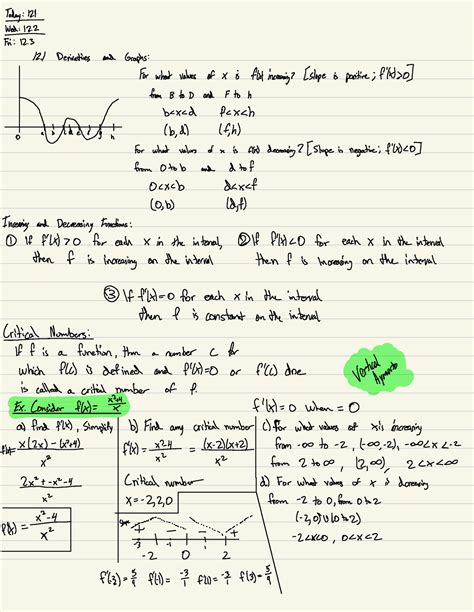 Today: 12.1
Wed: 12.2
Fri: 12.3
12.1 Derivatives and Graphs:
For what values of x is f(x) increasing? [slope is positive; f'(x)>0]
from B to D and F to h
b<x<d f<x<h
(b,d) (f,h)
For what values of x is f(x) decreasing? [slope is negative; f'(x)<0]
from 0 to b and d to f
0<x<b d<x<f
(0,b) (d,f)
0 b d f h
Increasing and Decreasing Functions:
① If f'(x)>0 for each x in the interval,
then f is increasing on the interval
② If f'(x)<0 for each x in the interval
then f is on the interval
③ If f'(x)=0 for each x in the interval
then f is constant on the interval
Critical Numbers:
If f is a function, then a number c for
which f(c) is defined and f'(x)=0 or f'(c) dne
is called a critical number of f.
Vertical
Ex. Consider f(x)= x²+4/x
f'(x)=0 when =0
a) find f'(x), Simplify
f'(x)= x(2x)-(x²+4)/x²
2x²+-x²-4/x²
f'(x)= x²-4/x²
b) Find any critical number
f'(x)= x²-4/x² = (x-2)(x+2)/x²
Critical number
x=-2,2,0
-3 -1 1 3
-2 0 2
f'(-3)=5/9 f'(-1)=-3/1 f'(1)=-3/1 f'(3)=5/9
c) For what values of x is increasing
from -∞ to -2, (-∞,-2), -∞<x<-2
from 2 to ∞, (2,∞), 2<x<∞
d) For what values of x is decreasing
from -2 to 0, from 0 to 2
(-2,0)U(0 to 2)
-2<x<0, 0<x<2